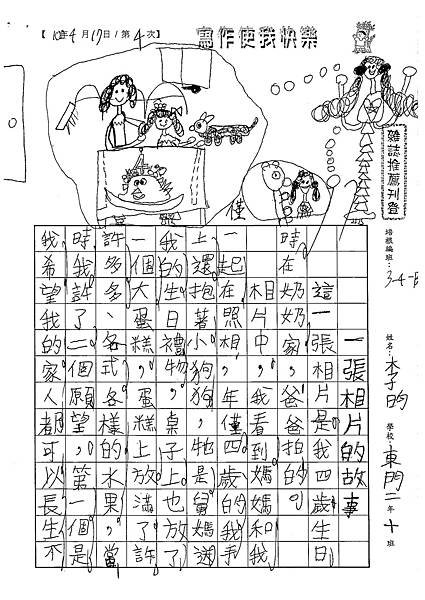 年4月17日/第4次】
寫作使我快樂
雜誌推薦刊登
培根編班：
姓名：李昀 學校：東門二年十班
一張相片的故事
這一張相片是我四歲生日
時在奶奶家，爸爸拍的。
相片中，我看到媽媽和我
一起在照相，年僅四歲的我手
上還抱著小狗，狗牠是舅媽送
我的生日禮物，桌子上也放了
一個大蛋糕，蛋糕上放滿了許
許多多、各式各樣的水果，當
時我許了二個願望，第一個是
我希望我的家人都可以長生不